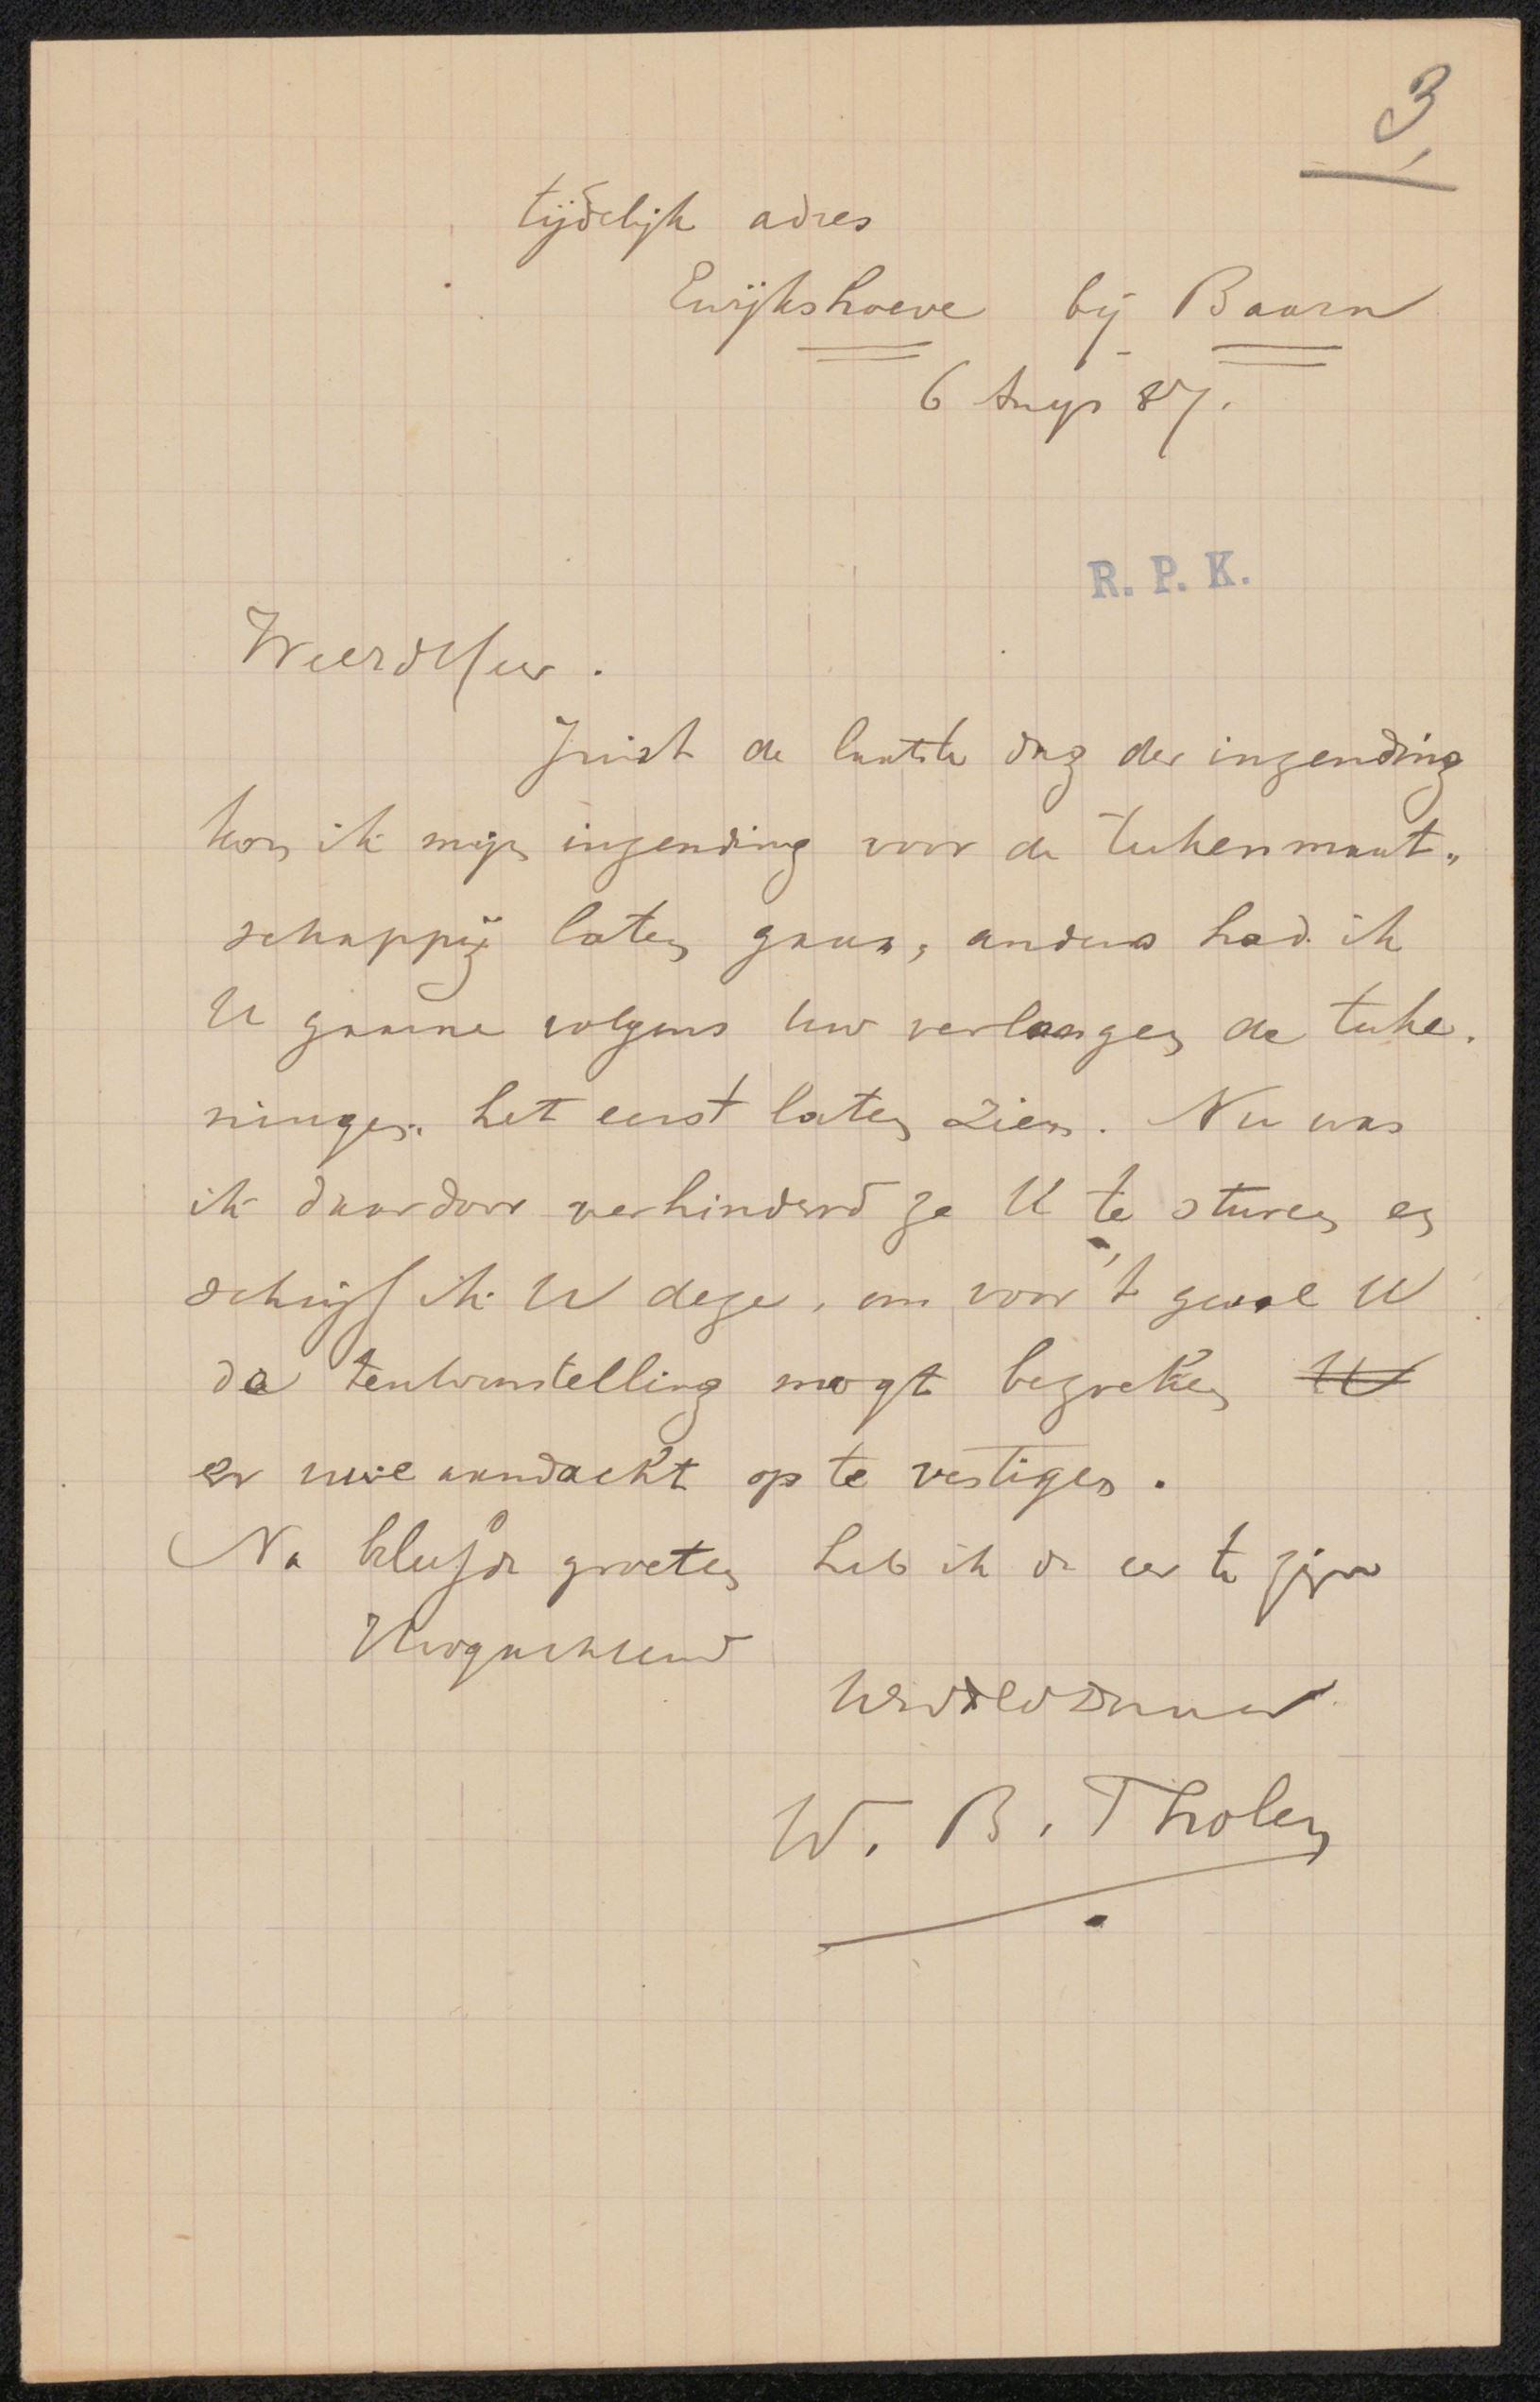 3
tijdelijk adres
Ewijkshoeve bij Baarn
6 Aug 87.
R. P. K.
Weerdheer.
Juist de laatste dag der inzending
kon ik mijn inzending voor de teekenmaat„
schappij laten gaan, anders had ik
U gaarne volgens uw verlangen de teeke.
ningen het eerst laten zien. Nu was
ik daardoor verhinderd ze U te sturen en
schrijf ik U deze, om voor 't geval U
de tentoonstelling mogt bezoeken U
er uwe aandacht op te vestigen.
Na beleefde groeten heb ik de eer te zijn
Hoogachtend
UEd dw dienaar
W. B. Tholen